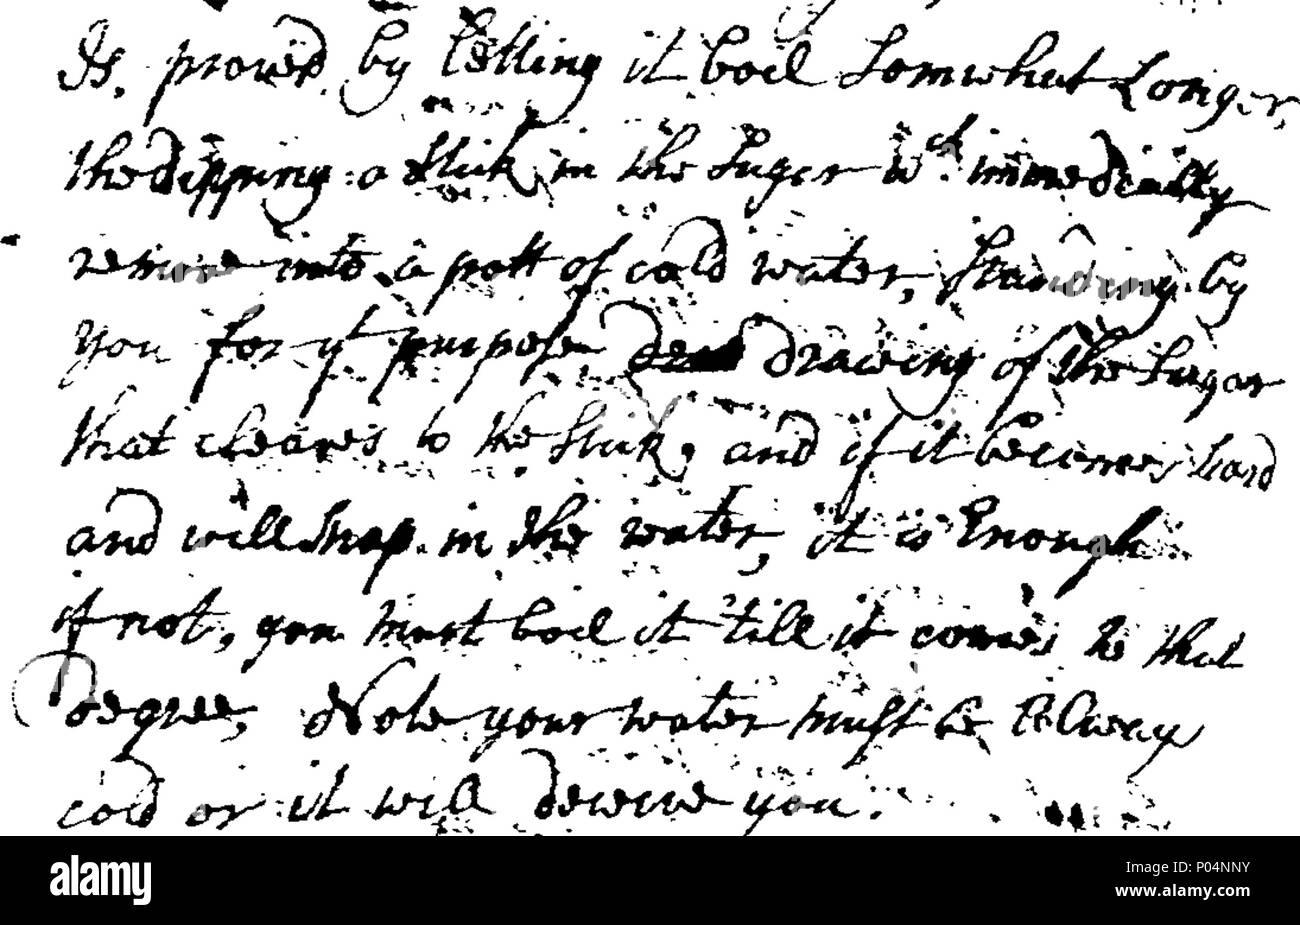 Is, proved by letting it boil Somwhat Longer,
the dipping a Stick in the Sugar wch immediatly
remove into a pott of cold water, Standing by
you for yt purpose drawing of the Sugar
that cleaves to the Stick, and if it becomes hard
and will Snap in the water, it is Enough
if not, you must boil it till it comes to that
Degree, Note your water must be Allway
cold or it will deceive you.
a alamy stock photo
a alamy
Image ID: P04NNY
www.alamy.com